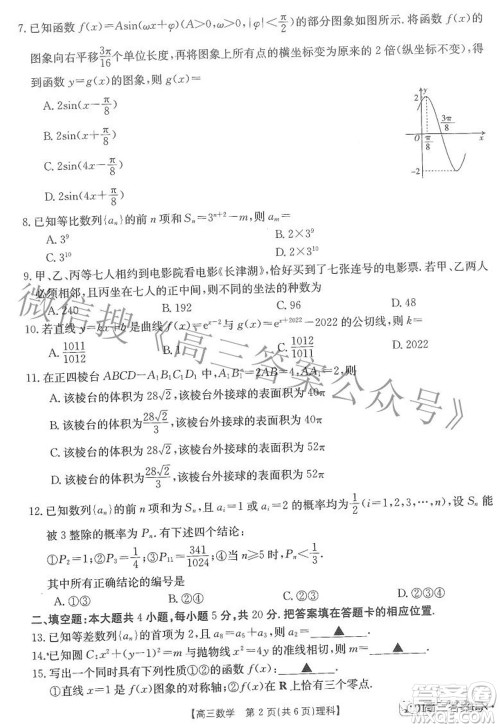 7. 已知函数 f(x)=Asin(ωx+φ)(A>0,ω>0,|φ|<π/2)的部分图象如图所示. 将函数 f(x)的
图象向右平移3π/16个单位长度,再将图象上所有点的横坐标变为原来的 2 倍(纵坐标不变),得
到函数 y=g(x)的图象,则 g(x)=
A. 2sin(x−π/8)
B. 2sin(x+π/8)
C. 2sin(4x−π/8)
D. 2sin(4x+π/8)
y
2
3π/8
O
π/8
x
−2
8. 已知等比数列{aₙ}的前 n 项和 Sₙ=3ⁿ⁺²−m,则
A. 3⁹
B. 2×3⁹
C. 3¹⁰
D. 2×3¹⁰
9. 甲、乙、丙等七人相约到电影院看电影《长津湖》,恰好买到了七张连号的电影票. 若甲、乙两人
必须相邻,且丙坐在七人的正中间,则不同的坐法的种数为
A. 240
B. 192
C. 96
D. 48
10. 若直线 y=kx+b 是曲线 f(x)=eˣ⁻² 与 g(x)=eˣ⁺²⁰²²−2022 的公切线,则 k=
A. 1011/1012
B. 1
C. 1012/1011
D. 2022
11. 在正四棱台 ABCD−A₁B₁C₁D₁ 中,A₁B₁=2AB=4,AA₁=2,则
A. 该棱台的体积为28√2/3,该棱台外接球的表面积为 40π
B. 该棱台的体积为28√2/3,该棱台外接球的表面积为
C. 该棱台的体积为 28√2,该棱台外接球的表面积为 40π
D. 该棱台的体积为 28√2,该棱台外接球的表面积为
12. 已知数列{aₙ}的前 n 项和为 Sₙ,且 aᵢ=1 或 aᵢ=2 的概率均为1/2(i=1,2,3,…,n),设 Sₙ 能
被 3 整除的概率为 Pₙ. 有下述四个结论:
①P₂=1;②P₃=1/4;③P₁₁=341/1024;④当 n≥5 时,Pₙ<1/3.
其中所有正确结论的编号是
A. ①③
B. ②④
C. ②③
D. ②③④
二、填空题:本大题共 4 小题,每小题 5 分,共 20 分. 把答案填在答题卡的相应位置.
13. 已知等差数列{aₙ}满足 则 ▲ .
14. 已知圆 C:x²+(y−1)²=m 与抛物线 x²=4y 的准线相切,则 m= ▲ .
15. 写出一个同时具有下列性质①②的函数 f(x)= ▲ .
①直线 是 f(x)图象的对称轴;②f(x)在 R 上恰有三个零点.
【高三数学 第 2 页(共 6 页)理科】
微信搜《高三答案公众号》